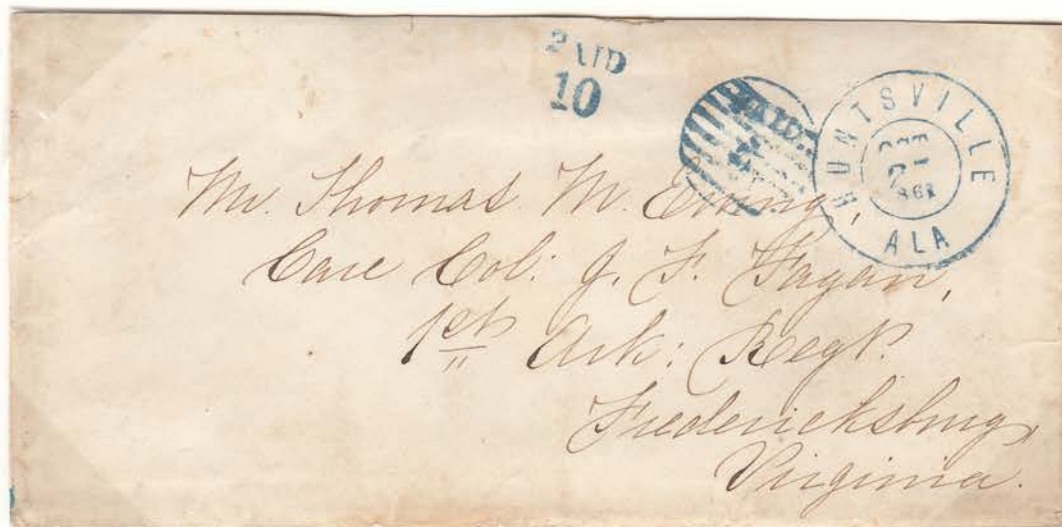 PAID
10
PAID
HUNTSVILLE
OCT
21
1861
ALA
Mr. Thomas M. Ewing,
Care Col: J. F. Fagan,
1st Ark: Regt.
Fredericksburg,
Virginia.